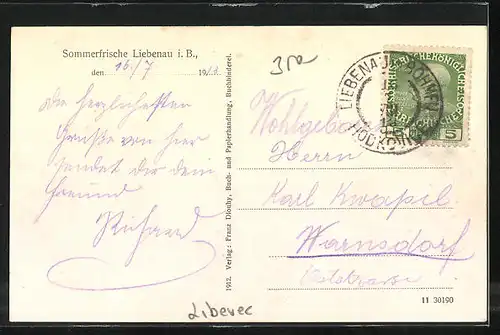 Sommerfrische Liebenau i. B.,
den 16/7 1913
Die herzlichsten
Grüße von hier
sendet dir dein
Freund
Richard
1912. Verlag: Franz Dlouhy, Buch- und Papierhandlung, Buchbinderei.
LIEBENAU BÖHMEN
HODKO
5
Wohlgeboren
Herrn
Karl Kwapil
Warnsdorf
11 30190
Liberec